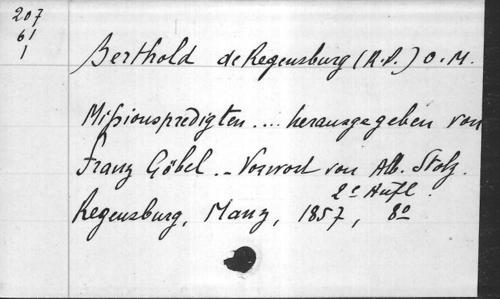 207
61
1
Berthold de Regensburg (R.P.) O.M.
Mißionspredigten .... herausgegeben von
Franz Göbel. _ Vorwort von Alb. Stolz.
2e Aufl.
Regensburg, Manz, 1857, 8o